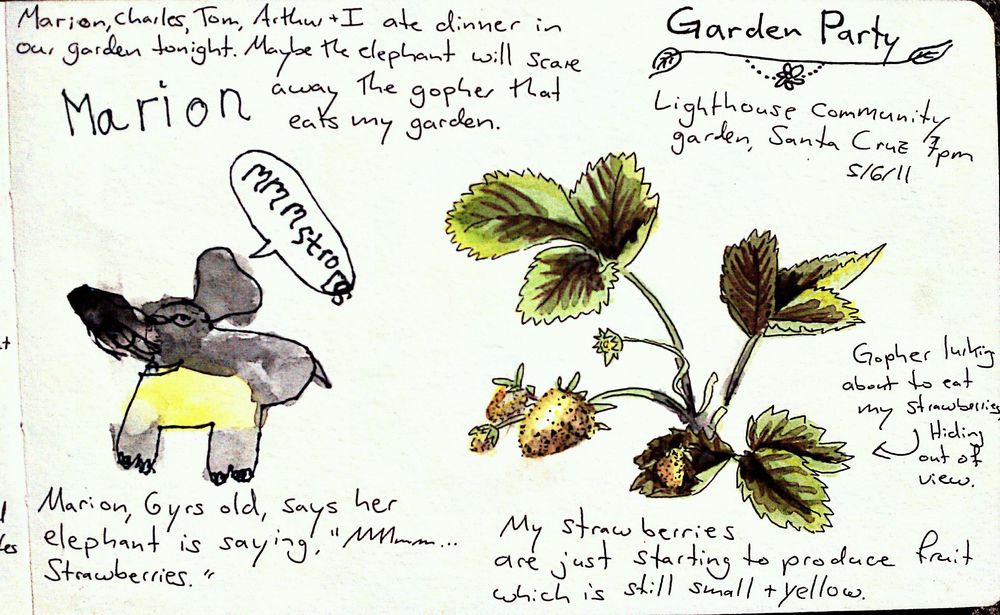 Marion, Charles, Tom, Arthur + I ate dinner in
our garden tonight. Maybe the elephant will scare
away the gopher that
eats my garden.
Marion
MMMstro
Marion, 6yrs old, says her
elephant is saying, "MMmmm...
Strawberries."
Garden Party
Lighthouse community
garden, Santa Cruz 7pm
5/6/11
Gopher lurking
about to eat
my strawberries
Hiding
out of
view.
My strawberries
are just starting to produce fruit
which is still small + yellow.